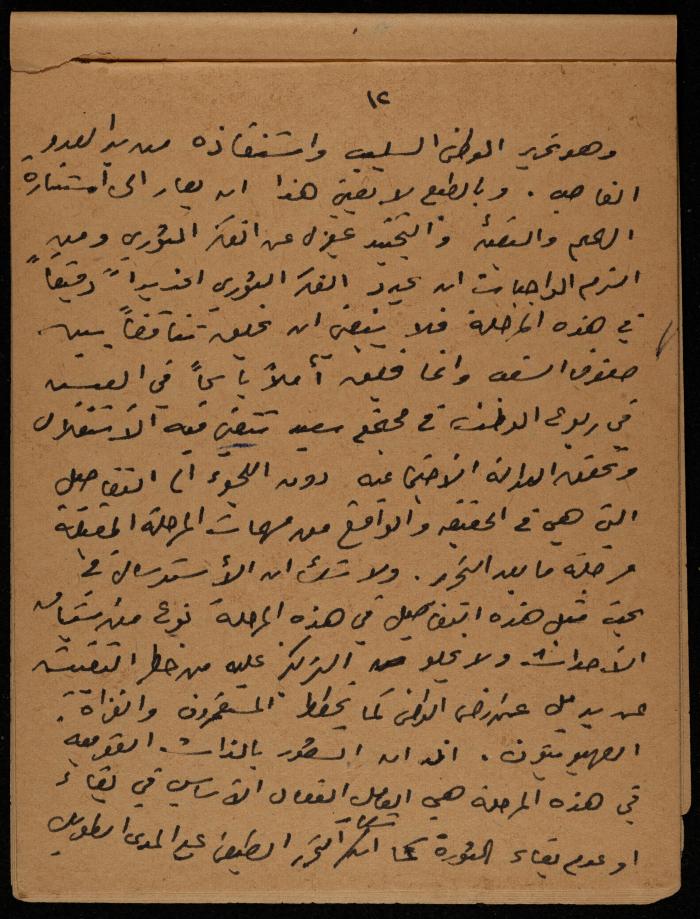 ١٢
وهو تحرير الوطن السليب واستنقاذه من يد العدو
الغاصب . وبالطبع لا يعني هذا ان يصار الى استثارة
الهمم والتعبئة والتجنيد بمعزل عن الفكر الثوري ومن
الزم الواجبات ان يحدد الفكر الثوري تحديداً دقيقاً
في هذه المرحلة فلا ينبغي ان نخلق تناقضاً بين
صفوف الشعب وانما نخلق أملاً باسماً في العيش
في ربوع الوطن في مجتمع سعيد ينتفي فيه الاستغلال
وتحقق العدالة الاجتماعية دون اللجوء الى التفاصيل
التي هي في الحقيقة والواقع من مهمات المرحلة المقبلة
مرحلة ما بعد التحرير . ولا شك ان الاسترسال في
بحث مثل هذه التفاصيل في هذه المرحلة نوع من استباق
الأحداث ولا يخلو التركيز عليه من خطر التفتيش
عن بديل عن ارض الوطن كما يخطط المستعمرون والغزاة
الصهيونيون . ان الشعور بالذات القومية
في هذه المرحلة هي العامل الفعال الأساسي في بقاء
او عدم بقاء الثورة كما ان التحرر الطبقي على المدى الطويل